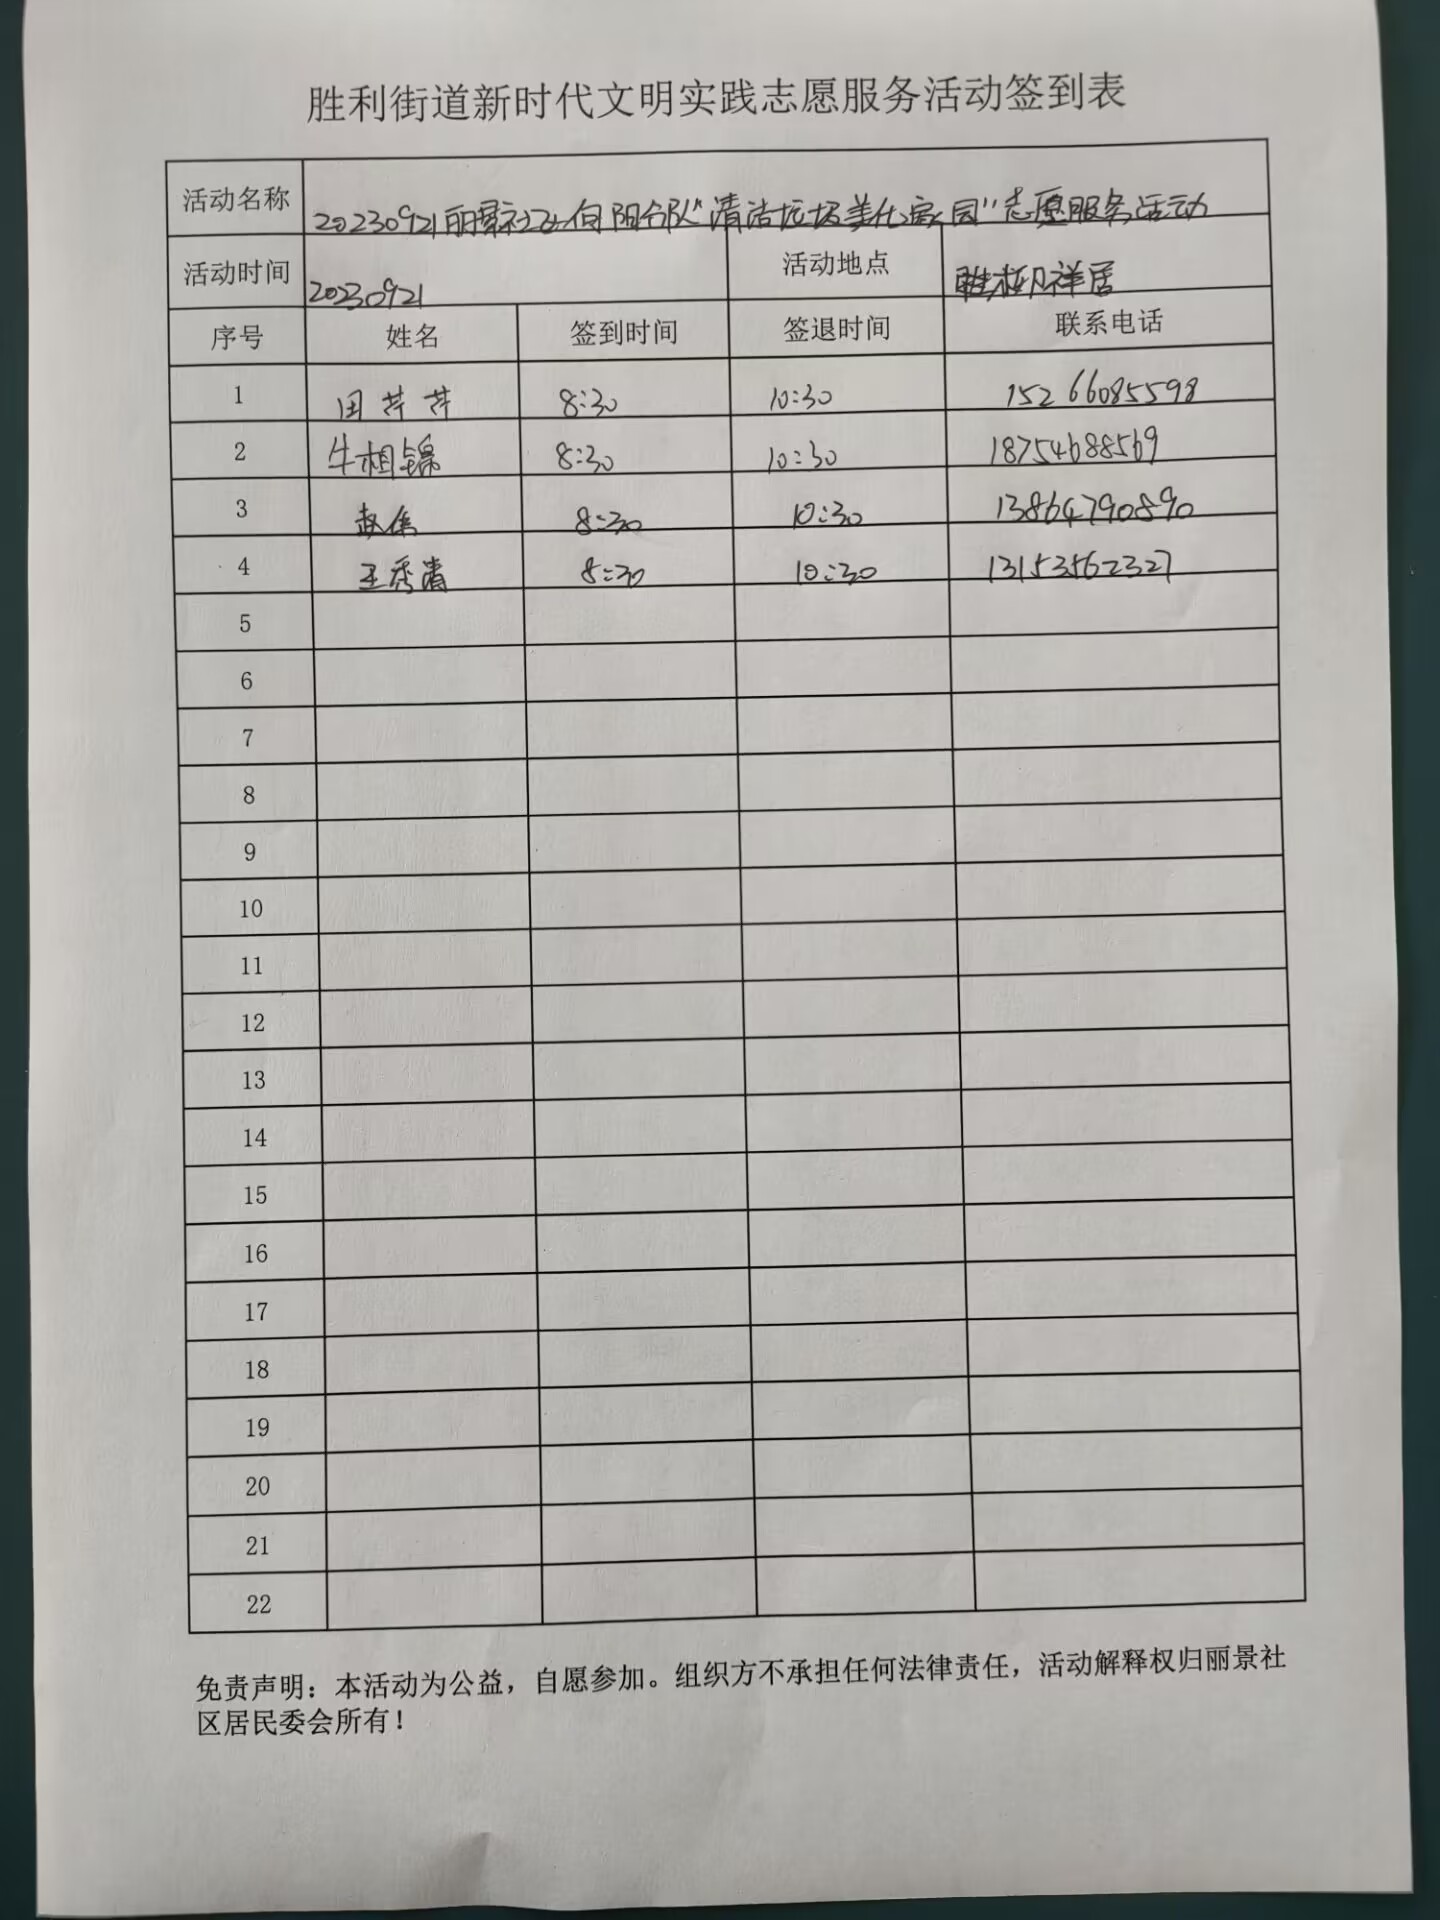 胜利街道新时代文明实践志愿服务活动签到表
活动名称 20230921丽景社区向阳分队"清洁垃圾美化家园"志愿服务活动
活动时间 20230921 活动地点 祥居
序号 姓名 签到时间 签退时间 联系电话
1 田芹芹 8:30 10:30 15266085598
2 牛相锦 8:30 10:30 18754688569
3 赵 8:30 10:30 13864790890
4 王秀清 8:30 10:30 13153562327
5
6
7
8
9
10
11
12
13
14
15
16
17
18
19
20
21
22
免责声明：本活动为公益，自愿参加。组织方不承担任何法律责任，活动解释权归丽景社
区居民委会所有！